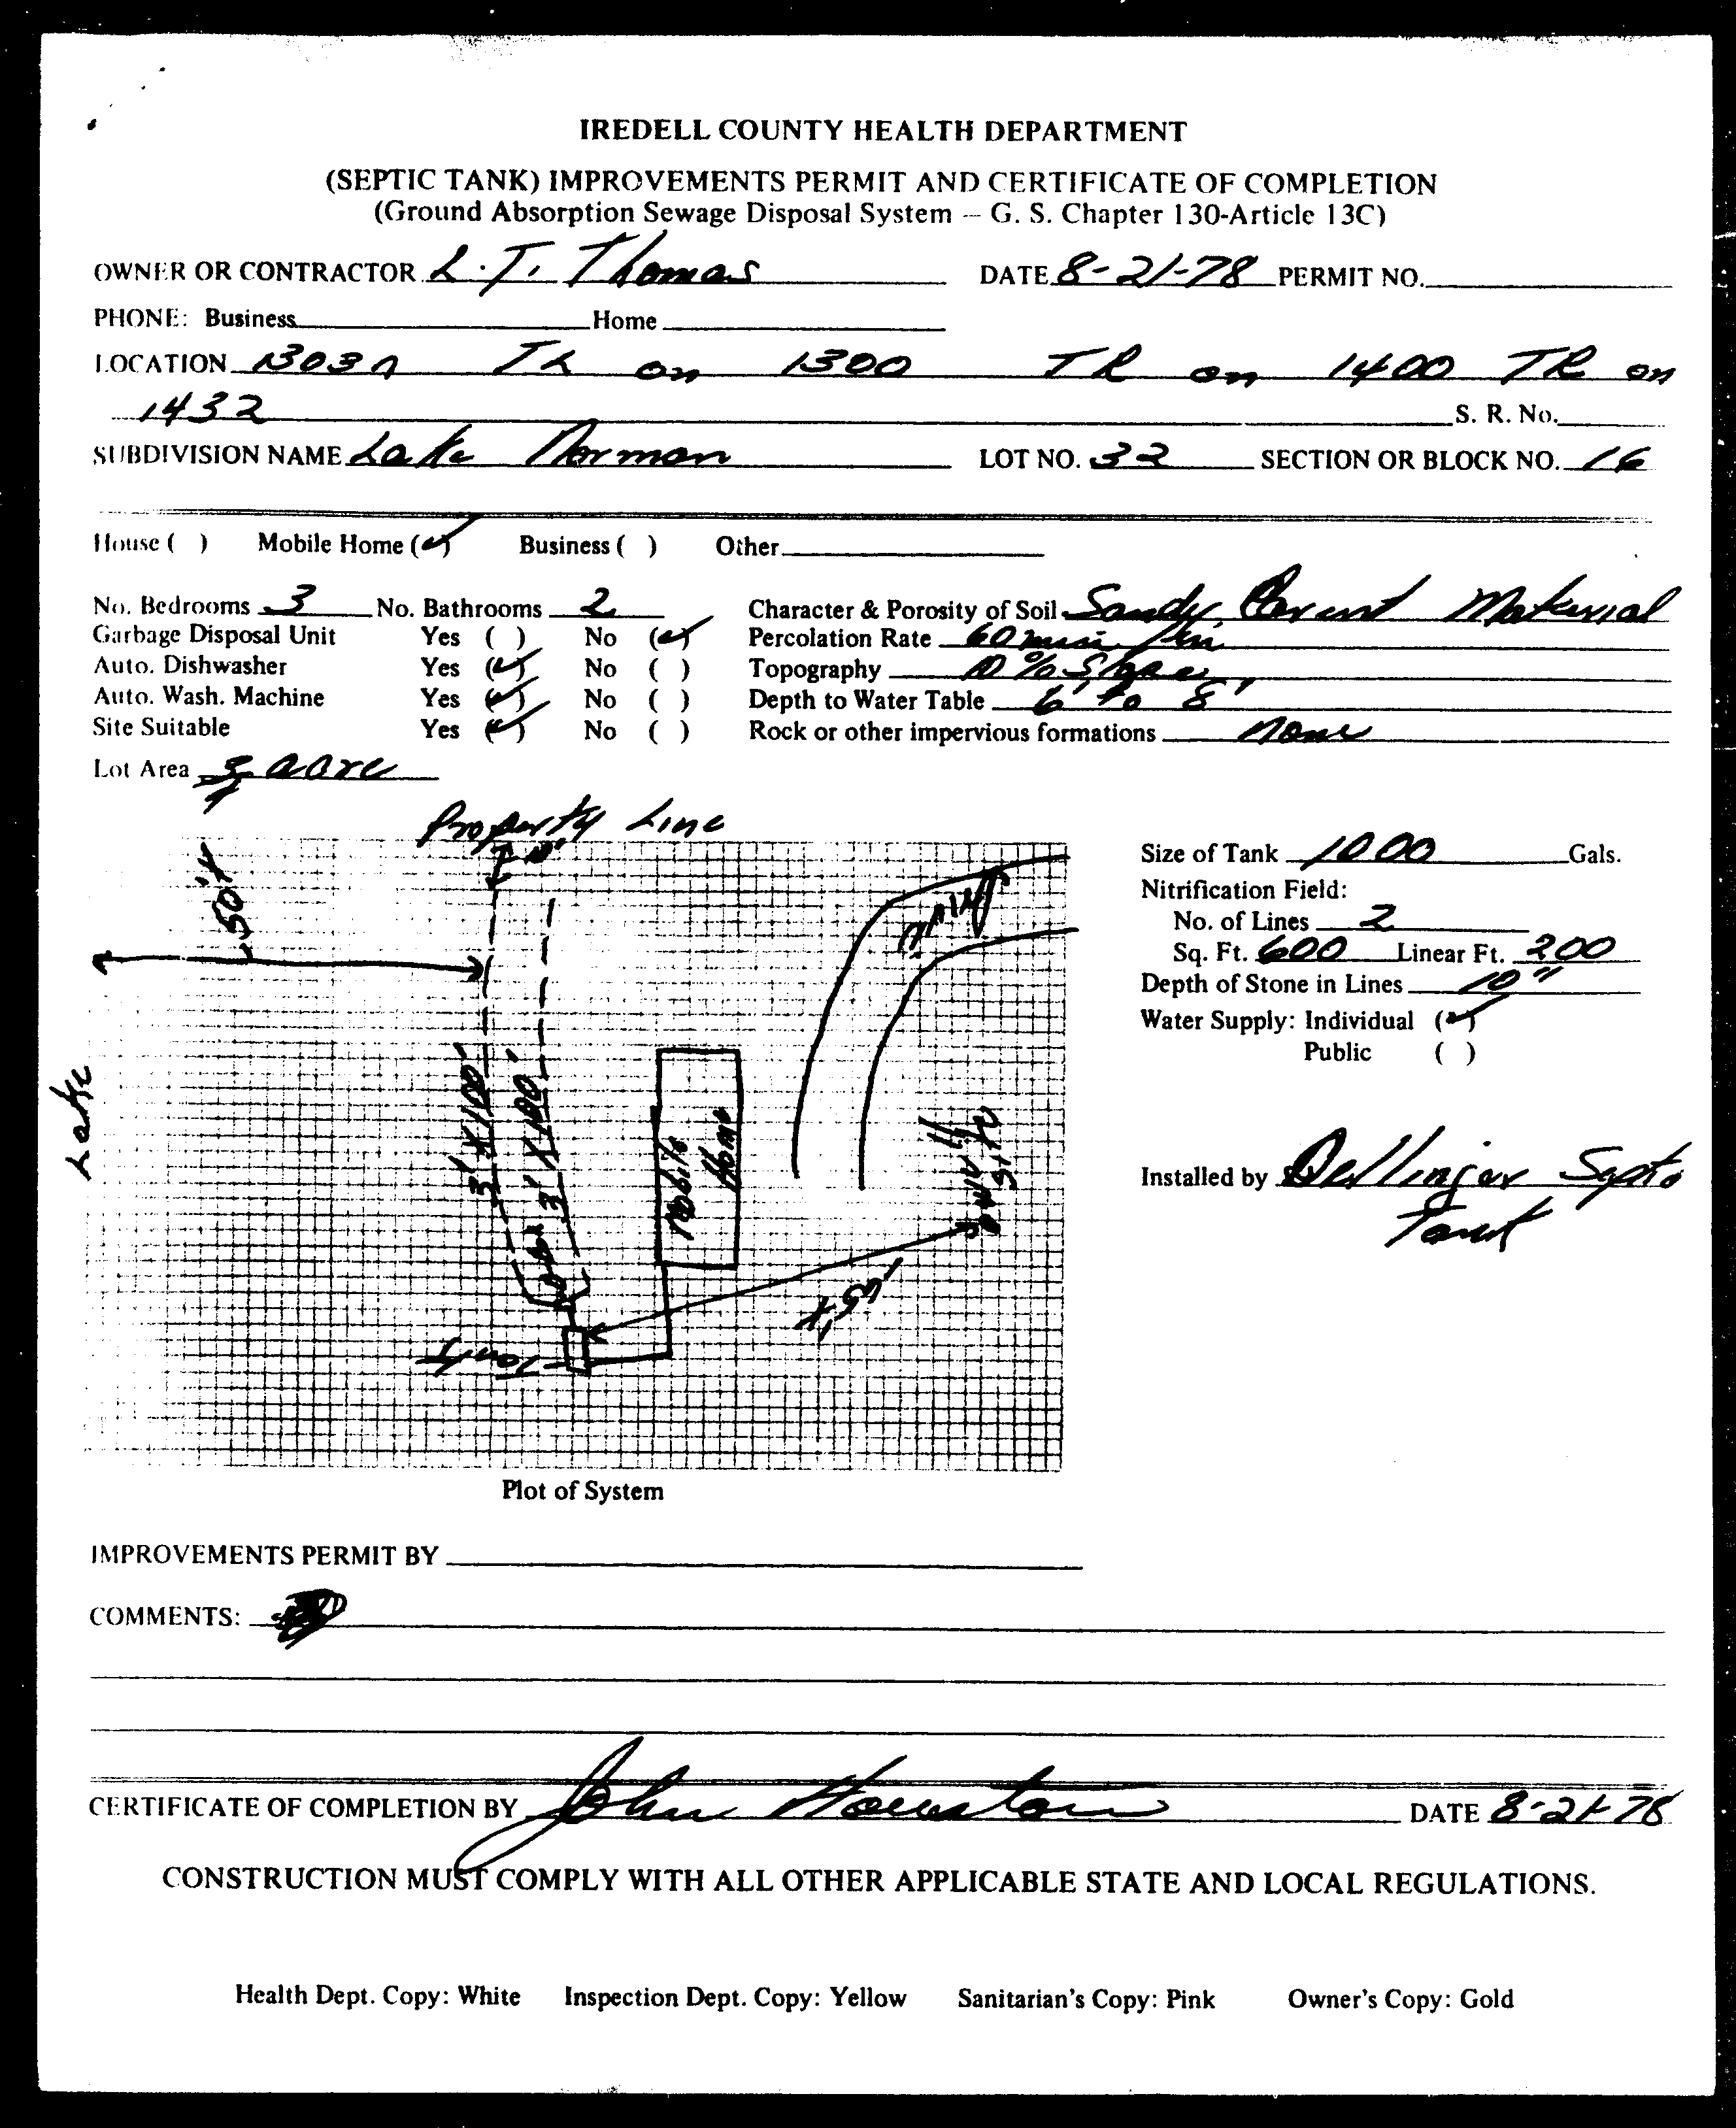 IREDELL COUNTY HEALTH DEPARTMENT
(SEPTIC TANK) IMPROVEMENTS PERMIT AND CERTIFICATE OF COMPLETION
(Ground Absorption Sewage Disposal System – G. S. Chapter 130-Article 13C)
OWNER OR CONTRACTOR L.T. Thomas DATE 8-21-78 PERMIT NO.
PHONE: Business Home
LOCATION TL on 1300 TR on 1400 TR on
1432 S. R. No.
SUBDIVISION NAME Lake Norman LOT NO. 32 SECTION OR BLOCK NO. 16
House ( ) Mobile Home (✓) Business ( ) Other
No. Bedrooms 3 No. Bathrooms 2 Character & Porosity of Soil Sandy Parent Material
Garbage Disposal Unit Yes ( ) No (✓) Percolation Rate 60 min/in
Auto. Dishwasher Yes (✓) No ( ) Topography 10% Slope
Auto. Wash. Machine Yes (✓) No ( ) Depth to Water Table 6' to 8'
Site Suitable Yes (✓) No ( ) Rock or other impervious formations None
Lot Area 3/4 acre
Property Line
10'
50'+
Drive
Lake
3' X 100'
3' X 100'
Mobile Home
Tank
Size of Tank 1000 Gals.
Nitrification Field:
No. of Lines 2
Sq. Ft. 600 Linear Ft. 200
Depth of Stone in Lines 10"
Water Supply: Individual (✓)
Public ( )
Installed by Dellinger Septic
Tank
Plot of System
IMPROVEMENTS PERMIT BY
COMMENTS:
CERTIFICATE OF COMPLETION BY John Houston DATE 8-21-78
CONSTRUCTION MUST COMPLY WITH ALL OTHER APPLICABLE STATE AND LOCAL REGULATIONS.
Health Dept. Copy: White Inspection Dept. Copy: Yellow Sanitarian's Copy: Pink Owner's Copy: Gold